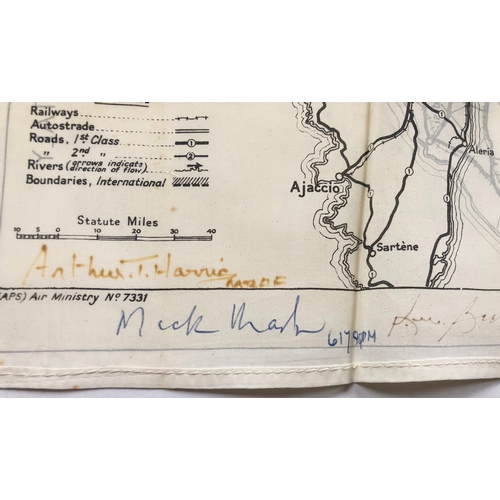 Railways
Autostrade
Roads, 1st Class
„ 2nd „
Rivers (arrows indicate direction of flow)
Boundaries, International
1
2
Ajaccio
Aleria
Sartène
Statute Miles
10 5 0 10 20 30 40
Arthur. T. Harris
APS) Air Ministry Nº 7331
Mick
617 SQDN